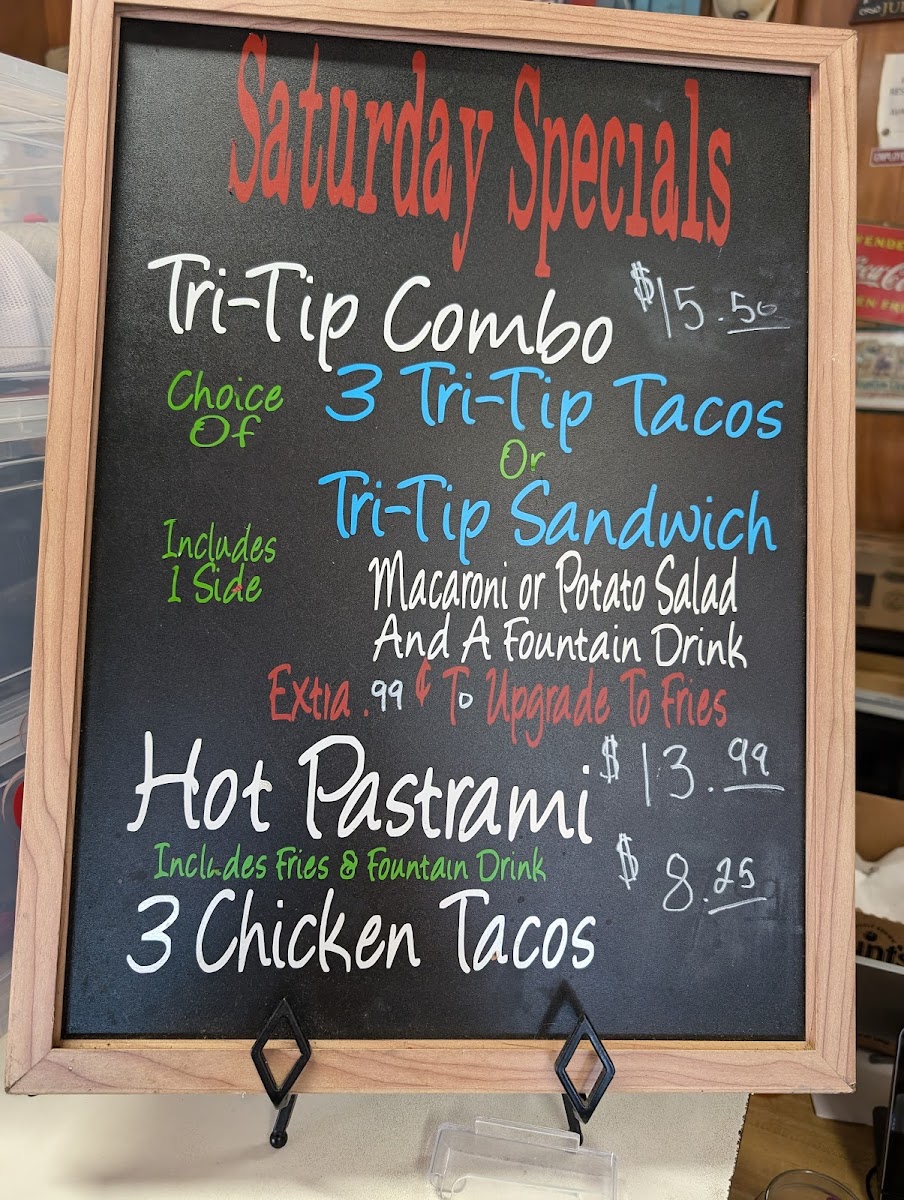 Saturday Specials
Tri-Tip Combo $15.50
Choice Of
3 Tri-Tip Tacos
Or
Tri-Tip Sandwich
Includes
1 Side
Macaroni or Potato Salad
And A Fountain Drink
Extra .99 ¢ To Upgrade To Fries
Hot Pastrami $13.99
Includes Fries & Fountain Drink
3 Chicken Tacos $8.25
Coca-Cola